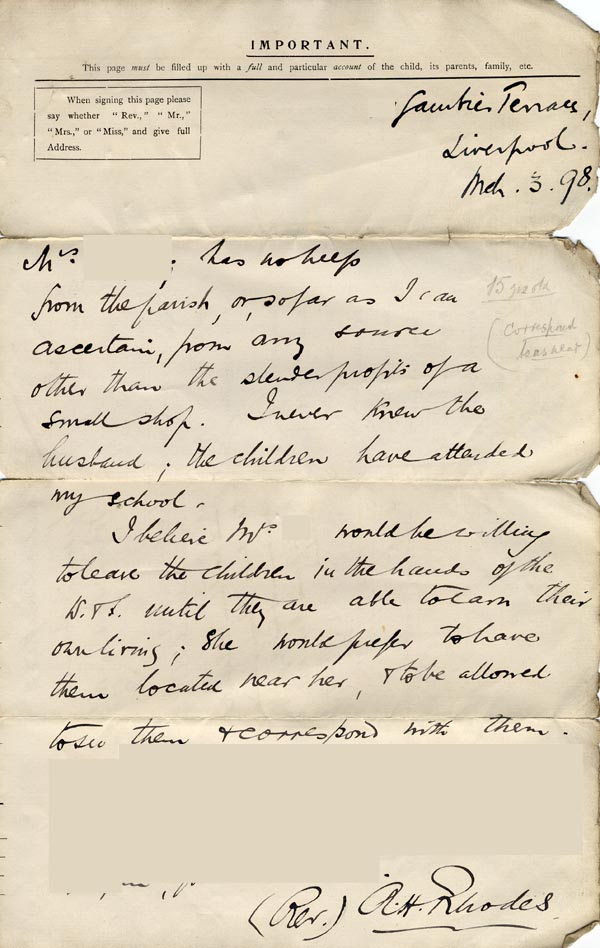 IMPORTANT.
This page must be filled up with a full and particular account of the child, its parents, family, etc.
When signing this page please
say whether "Rev.," "Mr.,"
"Mrs.," or "Miss," and give full
Address.
Gambier Terrace,
Liverpool.
Mch. 3. 98.
Mrs ; has no help
from the parish, or, so far as I can
ascertain, from any source
other than the slender profits of a
small shop. I never knew the
husband; the children have attended
my school.
I believe Mrs would be willing
to leave the children in the hands of the
W. & S. until they are able to earn their
own living; She would prefer to have
them located near her, & to be allowed
to see them & correspond with them.
(Correspond
(Rev.) A. H. Rhodes.